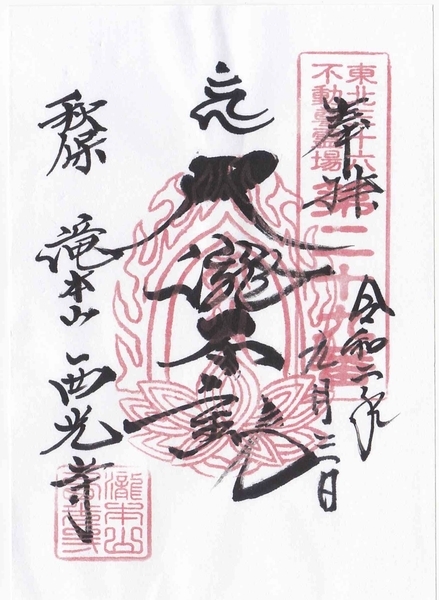 東北三十六
不動尊霊場
奉拝
令和二年
九月三日
大瀧不動尊
秋保 滝本山 西光寺
瀧本山
西光寺